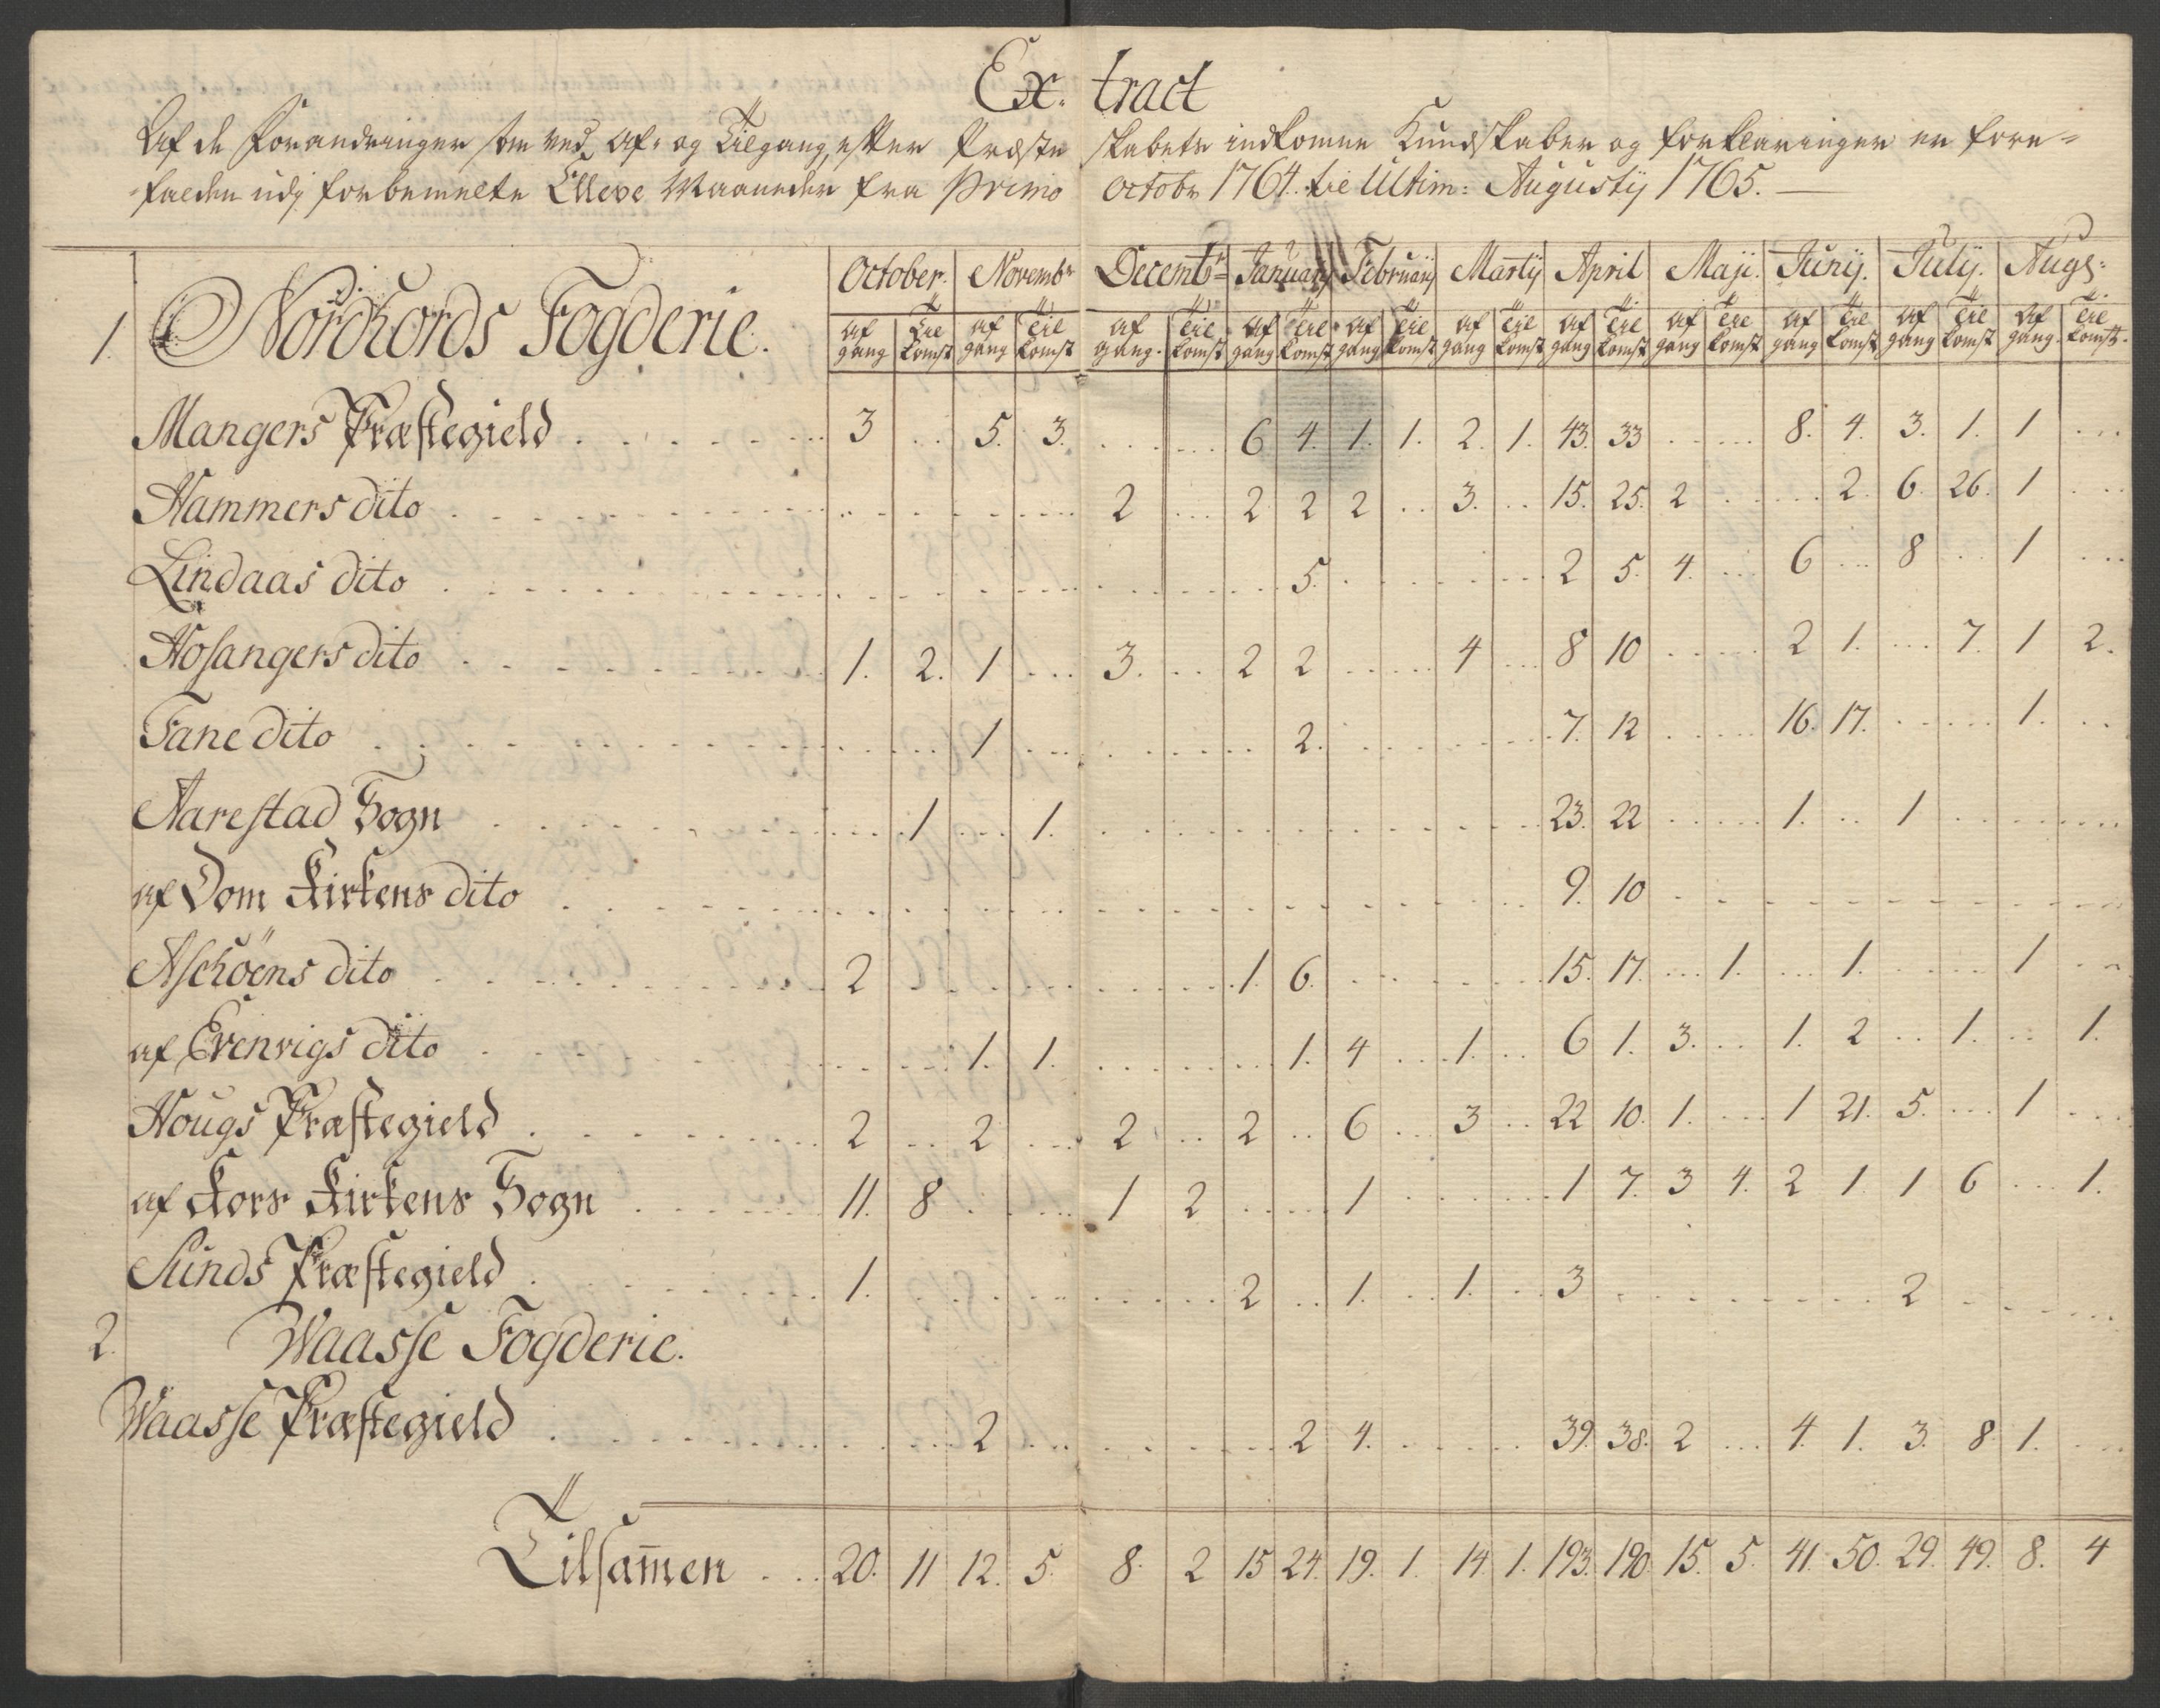 Ex. tract
Af de forandringer som ved Af- og Tilgang, efter Præste skabets indkomne Kundskaber og forklaringer er fore-
falden udj forbemelte Elleve Maaneder fra Primo Octobr 1764. til Ultim: Augustij 1765.
1. Nordhords Fogderie. October. Novembr Decembr January Februarij Martij April Maji. Junij. Julij. Augs:
af gang Til komst af gang Til komst af gang. Til komst af gang Til komst af gang Til komst af gang Til komst af gang Til komst af gang Til komst af gang Til komst af gang Til komst af gang. Til komst.
Mangers Præstegield 3 .. 5. 3. ... ... 6 4. 1. 1. 2. 1. 43. 33 ... ... 8. 4. 3. 1. 1 ...
Hammers dito ... ... ... ... 2 ... 2 2 2 .. 3. .. 15. 25. 2 ... ... 2. 6. 26. 1 ...
Lindaas dito ... ... ... ... ... ... ... 5. ... ... ... ... 2 5. 4. ... 6 ... 8 .. 1 ...
Hosangers dito 1. 2. 1 ... 3. .. 2 2 ... ... 4 ... 8 10 ... ... 2 1. ... 7. 1 2.
Fane dito ... ... 1 ... ... ... ... 2. ... ... ... ... 7. 12 ... ... 16. 17. ... ... 1. ..
Aarestad Sogn ... 1 ... 1. ... ... ... ... ... ... ... ... 23. 22 ... ... 1. .. 1 ... ... ...
af Dom Kirkens dito ... ... ... ... ... ... ... ... ... ... ... ... 9. 10 ... ... ... ... ... ... ... ...
Aschöens dito 2 ... ... ... ... ... 1. 6. ... ... ... ... 15. 17. ... 1. ... 1. ... ... 1 ..
af Evenvigs dito ... ... 1. 1. ... ... ... 1. 4 ... 1. .. 6 1. 3. .. 1. 2 .. 1. .. 1.
Hougs Præstegield 2 .. 2 ... 2 .. 2 .. 6 .. 3 .. 22 10. 1. ... 1 21. 5. ... 1 ...
af Kors Kirkens Sogn 11. 8 ... ... 1 2 ... ... 1 ... ... ... 1 7. 3 4. 2 1. 1 6 ... 1.
Sunds Præstegield 1. ... ... ... ... ... 2 .. 1. .. 1. .. 3 ... ... ... ... ... 2 ... ... ...
2. Waasse Fogderie.
Waasse Præstegield ... ... 2 ... ... ... ... 2 4. ... ... ... 39. 38. 2 ... 4. 1. 3. 8 1. ...
Tilsam̄en 20. 11 12. 5. 8. 2 15 24. 19. 1. 14 1. 193. 190 15. 5. 41. 50. 29. 49. 8. 4